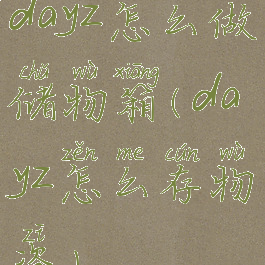 dayz怎么做
chǔ wù xiāng
储物箱(da
zěn me cún wù
yz怎么存物